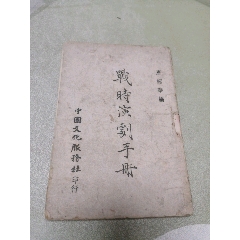 戰時演劇手册
中國文化服務社印行